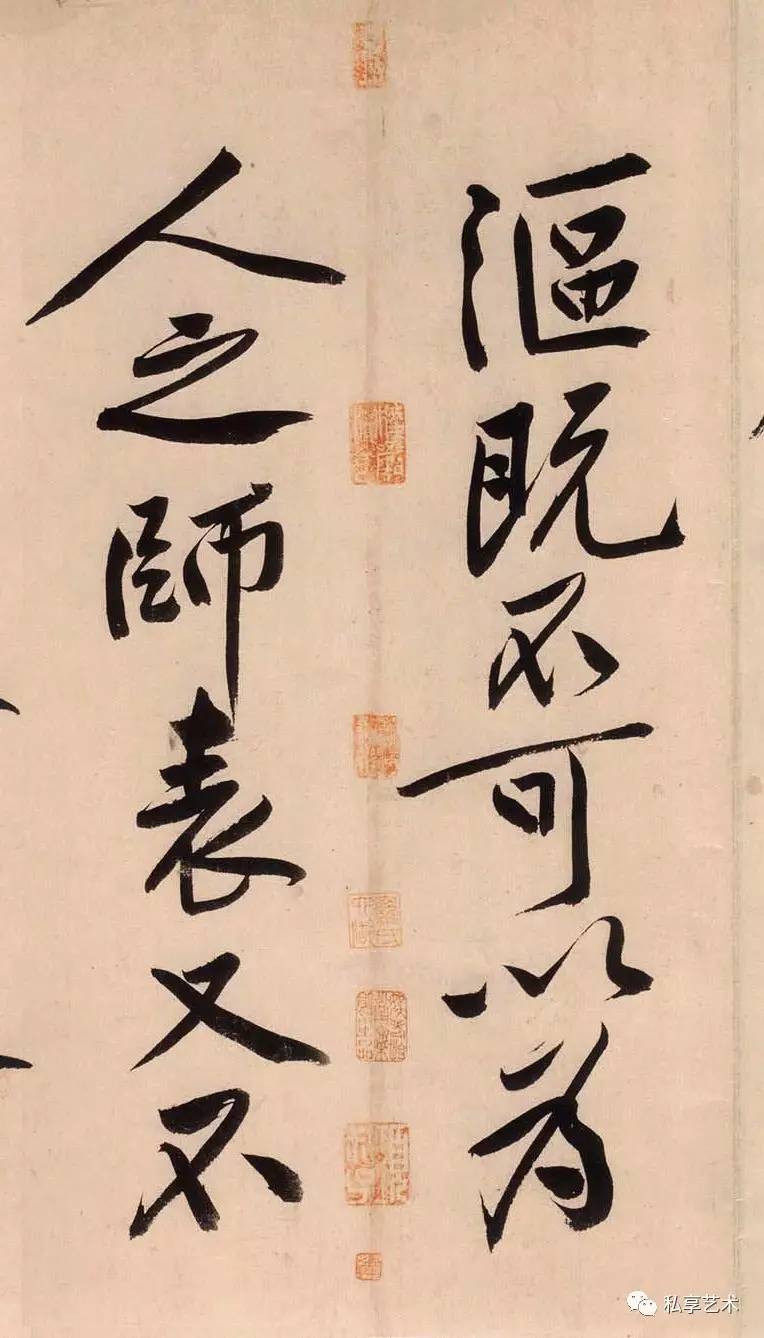 漚既不可以為
人之師表又不
私享艺术